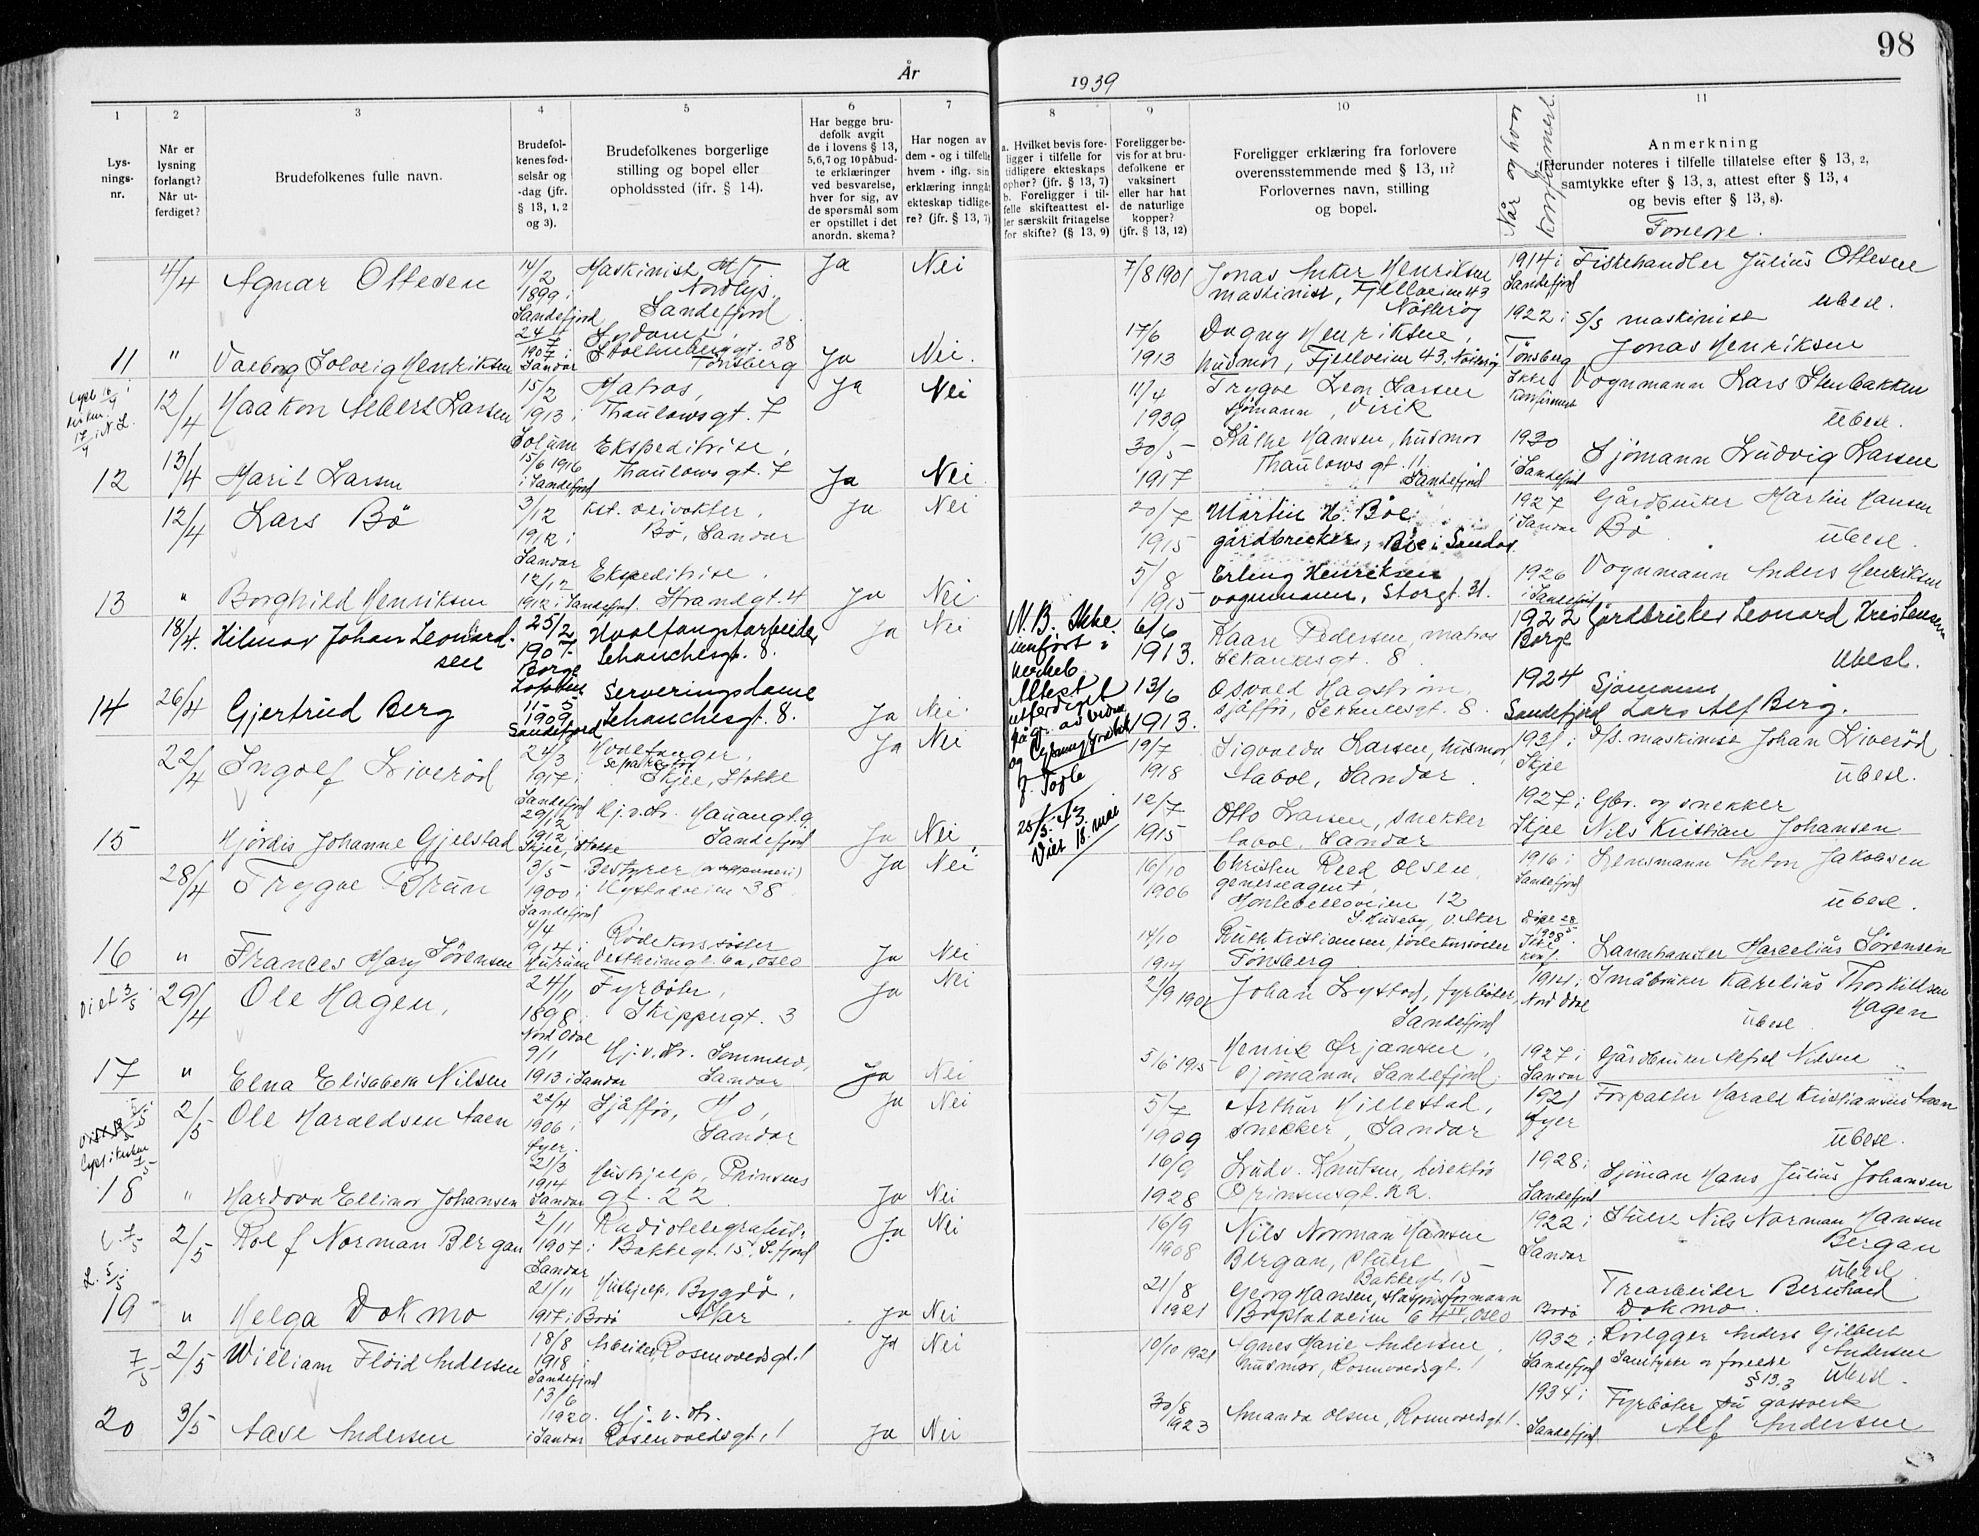 98
År 1939
1
2
3
4
5
6
7
8
9
10
11
Lys-
nings-
nr.
Når er
lysning
forlangt?
Når ut-
ferdiget?
Brudefolkenes fulle navn.
Brudefol-
kenes fød-
selsår og
-dag (jfr.
§ 13, 1, 2
og 3).
Brudefolkenes borgerlige
stilling og bopel eller
opholdssted (jfr. § 14).
Har begge bru-
defolk avgit
de i lovens § 13,
5,6,7 og 10 påbud-
te erklæringer
ved besvarelse,
hver for sig, av
de spørsmål som
er opstillet i det
anordn. skema?
Har nogen av
dem - og i tilfelle
hvem - iflg. sin
erklæring inngått
ekteskap tidlige-
re? (jfr. § 13, 7)
a. Hvilket bevis fore-
ligger i tilfelle for
tidligere ekteskaps
ophør? (jfr. § 13, 7)
b. Foreligger i til-
felle skifteattest el-
ler særskilt fritagelse
for skifte? (§ 13, 9)
Foreligger be-
vis for at bru-
defolkene er
vaksinert
eller har hat
de naturlige
kopper?
(jfr. § 13, 12)
Foreligger erklæring fra forlovere
overensstemmende med § 13, 11?
Forlovernes navn, stilling
og bopel.
Når og hvor
konfirmert.
Anmerkning
(Herunder noteres i tilfelle tillatelse efter § 13, 2,
samtykke efter § 13, 3, attest efter § 13, 4
og bevis efter § 13, 8).
4/4 Agnar Ottesen 14/2 1899 i Sandefjord Maskinist M/T. Nordlys Sandefjord Ja Nei 7/8 1901 Jonas Anker Henriksen maskinist, Fjellveien 43 Nøtterøy 1914 i Sandefjord Fiskehandler Julius Ottesen ubesl.
11 " Valborg Solveig Henriksen 24/7 1907 i Sandar 38 Tønsberg Ja Nei. 17/6 1913 Dagny Henriksen, husmor, Fjellveien 43, Nøtterøy 1922 i Tønsberg S/S maskinist Jonas Henriksen
12/4 Haakon Albert Larsen 15/2 1913 i Solum Matros, Thaulowsgt. 7 Ja Nei 11/4 1939 Trygve Leon Larsen sjømann, Virik Ikke konfirmert Vognmann Lars Stenbakken ubesl.
12 13/4 Marit Larsen 15/6 1916 i Sandefjord Ekspeditrise, Thaulowsgt. 7 Ja Nei 30/5 1917 Käthe Hansen, husmor Thaulowsgt. 11 Sandefjord 1930 i Sandefjord Sjømann Ludvig Larsen
12/4 Lars Bö 3/12 1912 i Sandar Bö, Sandar Ja Nei 20/7 1915 Martin H. Bøe gårdbruker, Bøe i Sandar 1927 i Sandar Gårdbruker Martin Hansen Bö ubesl.
13 " Borghild Henriksen 12/12 1912 i Sandefjord Ekspeditrise, Strandgt. 4 Ja Nei 5/8 1915 Erling Henriksen vognmann, Storgt. 31. 1926 i Sandefjord Vognmann Anders Henriksen
18/4. Hilmar Johan Leonardsen 25/2 1907 Borge Lofoten Hvalfangstarbeider Schanchesgt. 8. Ja Nei 6/6 1913. Kaare Pedersen, matros Schanchesgt. 8 1922 Borge Gårdbruker Leonard Kristensen Ubesl.
14 26/4 Gjertrud Berg 11-5 1909 Sandefjord Serveringsdame Schanchesgt. 8. Ja Nei 13/6 1913. Osvald Hagstrøm, sjåffør, Schanchesgt. 8. 1924 Sandefjord Sjømann Lars Alf Berg.
N.B. Ikke
innført i
Attest
utferdigt
25/5. 43.
Vier 18. mai
22/4 Ingolf Liverød 24/3 1917 i Sandefjord Hvalfanger, Skjee, Stokke Ja Nei 19/7 1918 Sigvalda Larsen, husmor, Aaboe, Sandar 1931 i Skjee S/S. maskinist Johan Liverød ubesl.
15 Hjørdis Johanne Gjelstad 29/12 1912 i Skjee Stokke Hj.v.dr. Hauangt. 9. Sandefjord Ja Nei 12/7 1915 Otto Larsen, snekker Aaboe, Sandar 1927 i Skjee Gbr. og snekker Nils Kristian Johansen
28/4 Trygve Brun 3/5 1900 i Sandefjord Bestyrer Hystadveien 38 Ja Nei 16/10 1906 Christen Reed Olsen, generalagent, Montebelloveien 12 1916 i Sandefjord Lensmann Anton Jakobsen ubesl.
16 " Frances Mary Sørensen 4/4 1914 i Hurum Rødekorssøster Vestheimgt. 6a, Oslo Ja Nei 14/10 1914 Ruth Kristiansen, rødekorssøster Tønsberg Ikke konf. Marcelius Sørensen
Viet 3/5 29/4 Ole Hagen, 24/11 1898 i Nord Odal Fyrbøter, Skippergt. 3 Ja Nei 21/9 1901 Johan Lystad, fyrbøter, Sandefjord 1914 i Nord Odal Småbruker Karelius Thorkildsen Hagen ubesl.
17 " Elna Elisabeth Nilsen 9/1 1913 i Sandar Hj.v.dr. Sommero, Sandar Ja Nei 5/6 1915 Henrik Ørjansen, sjømann, Sandefjord. 1927 i Sandar Gårdbruker Alfred Nilsen
2/5 Ole Haraldsen Aaen 22/4 1906 i Fyer. Sjåffør, Mo, Sandar Ja Nei 5/7 1909 Arthur Hillestad, snekker, Sandar 1921 Fyer Forpakter Harald Kristiansen Aaen ubesl.
18 " Hardova Ellinor Johansen 21/3 1914 Sandar Hushjelp, Prinsensgt. 22 Ja Nei 16/9 1928 Ludv. Knutsen, direktør Prinsensgt. 22. 1928 i Sandefjord Sjöman Hans Julius Johansen
2/5 Rolf Norman Bergan 2/11 1907 i Sandar Radiotelegrafist, Bakkegt. 15. S.fjord Ja Nei 16/9 1908 Nils Norman Hansen Bergan, stuert Bakkegt. 15 1922 i Sandar Stuert Nils Norman Hansen Bergan ubesl.
19 " Helga Dokmo 21/11 1917 i Bodø Hushjelp, Bygdø, Aker Ja Nei 21/8 1921 Georg Hansen, Oslo Bodø Trearbeider Bernhard Dokmo.
7/5 2/5 William Floid Andersen 18/8 1918 i Sandefjord Arbeider, Rosenvoldsgt. 1 Ja Nei 10/10 1921 Agnes Marie Andersen, husmor, Rosenvoldsgt. 1 1932 i Sandefjord Anders Gilbert Andersen Samtykke av foreldre § 13, 3 Ubesl.
20 3/5 Aase Andersen 13/6 1920. i Sandar Hj. v. dr. Rosenvoldsgt. 1 Ja Nei 30/8 1923 Amanda Olsen, Rosenvoldsgt 1. 1934 i Sandefjord Fyrbøter på gassverk Alf Andersen